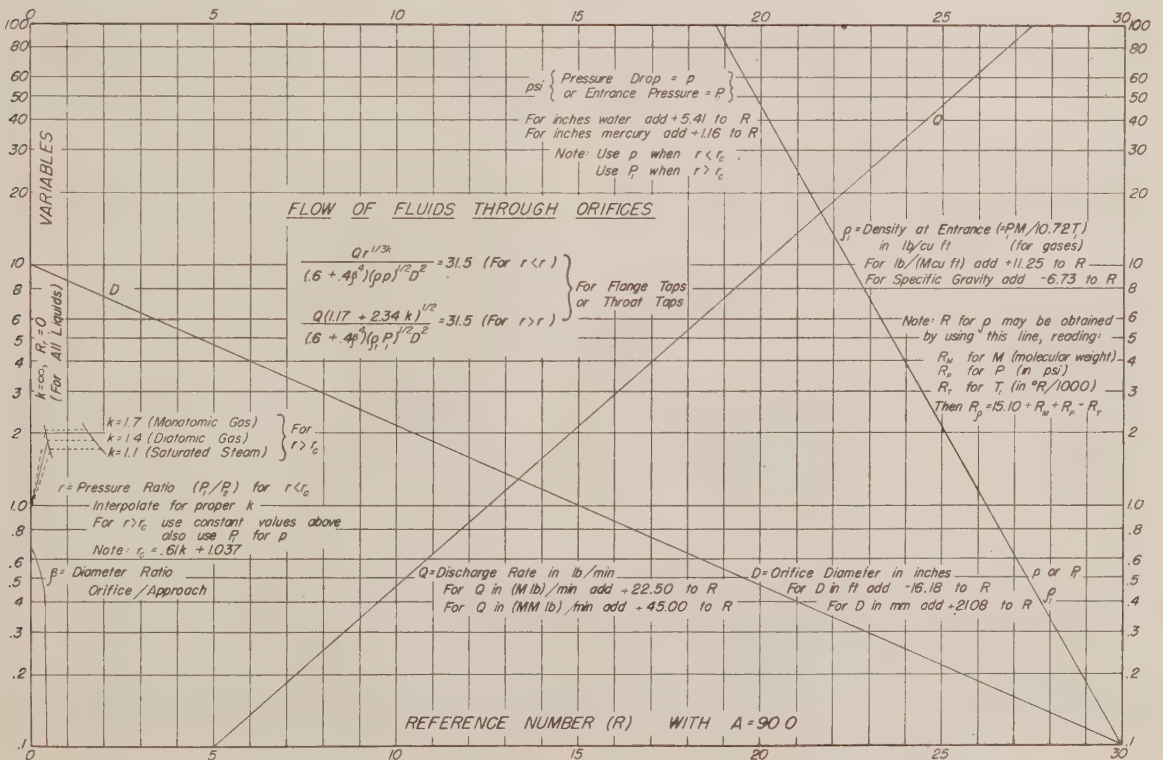 0 5 10 15 20 25 30
100 100
80 80
60 60
50 50
40 40
30 30
20 20
10 10
8 8
6 6
5 5
4 4
3 3
2 2
1.0 1.0
.8 .8
.6 .6
.5 .5
.4 .4
.3 .3
.2 .2
.1 .1
VARIABLES
psi { Pressure Drop = p
or Entrance Pressure = P₁ }
For inches water add +5.41 to R
For inches mercury add +1.16 to R
Note: Use p when r < r_c
Use P₁ when r > r_c
Q
FLOW OF FLUIDS THROUGH ORIFICES
Qr^1/3k / (.6 + .4β⁴)(ρp)^1/2 D² = 31.5 (For r<r)
Q(1.17 + 2.34 k)^1/2 / (.6 + .4β⁴)(ρ₁P₁)^1/2 D² = 31.5 (For r>r)
For Flange Taps
or Throat Taps
ρ₁ = Density at Entrance (=P₁M/10.72T₁)
in lb/cu ft (for gases)
For lb/(Mcu ft) add +11.25 to R
For Specific Gravity add -6.73 to R
Note: R for ρ may be obtained
by using this line, reading:
R_M for M (molecular weight)
R_P for P (in psi)
R_T for T₁ (in °R/1000)
Then R_ρ = 15.10 + R_M + R_P - R_T
D
k=∞, R_r=0
(For All Liquids)
k=1.7 (Monatomic Gas)
k=1.4 (Diatomic Gas)
k=1.1 (Saturated Steam)
For
r>r_c
r = Pressure Ratio (P₁/P₂) for r<r_c
Interpolate for proper k
For r>r_c use constant values above
also use P₁ for p
Note: r_c = .61k + 1.037
β = Diameter Ratio
Orifice/Approach
Q=Discharge Rate in lb/min
For Q in (M lb)/min add +22.50 to R
For Q in (MM lb)/min add +45.00 to R
D=Orifice Diameter in inches
For D in ft add -16.18 to R
For D in mm add +21.08 to R
p or P₁
ρ₁
REFERENCE NUMBER (R) WITH A = 90 0
0 5 10 15 20 25 30